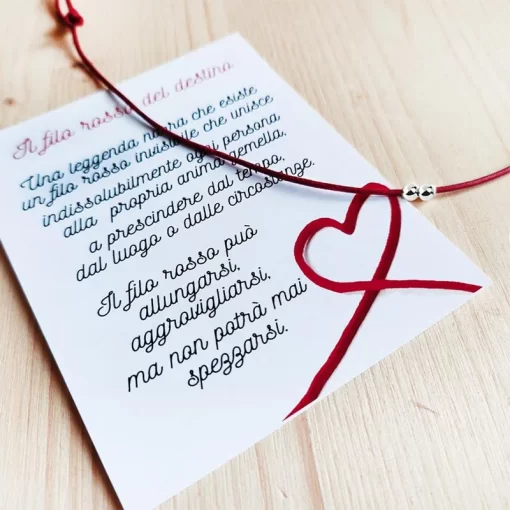 Il filo rosso del destino
Una leggenda narra che esiste
un filo rosso invisibile che unisce
indissolubilmente ogni persona
alla propria anima gemella,
a prescindere dal tempo,
dal luogo o dalle circostanze.
Il filo rosso può
allungarsi,
aggrovigliarsi,
ma non potrà mai
spezzarsi.